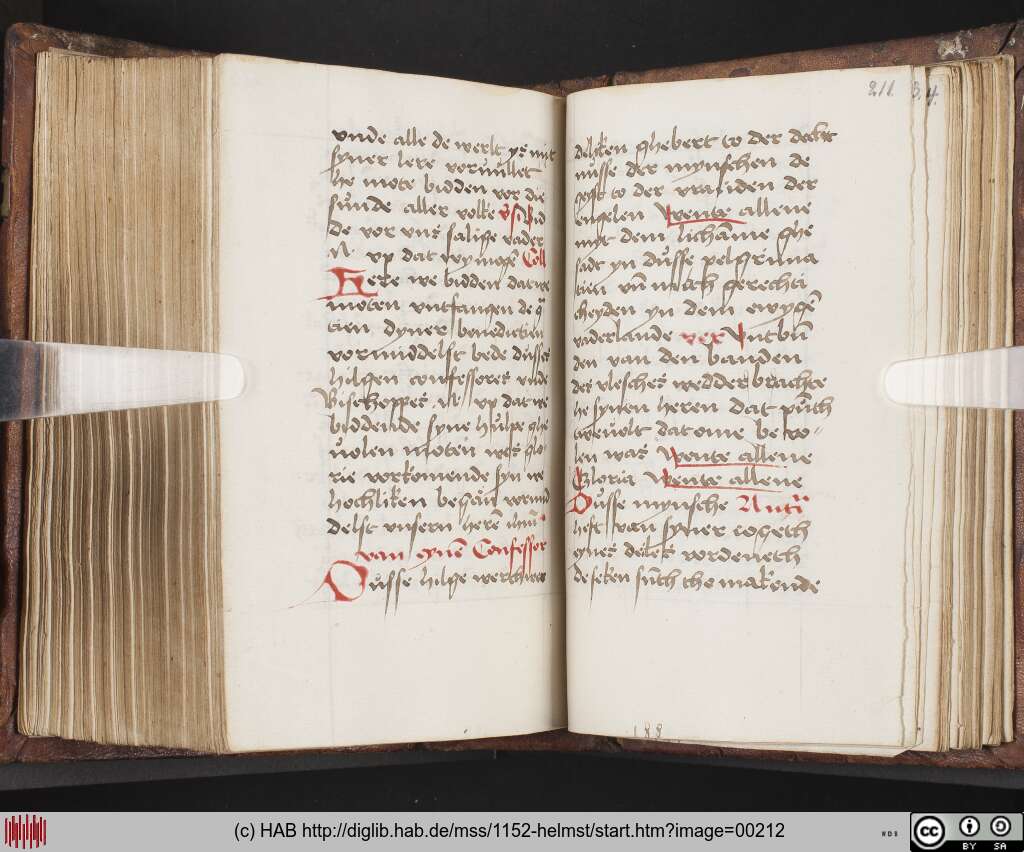 vnde alle de werlt ys mit
syner lere voruullet
he mote bidden vor die
sunde aller volke vs Bid
de vor vns salige vader
N vp dat wy mogē Coll
Here we bidden dat we
moten vntfangen de g
tien dyner benedictien
vormiddelst bede dusses
hilgen confessores vnde
Bischoppes N vp dat we
biddende syne hulpe ghe
uolen moten wes glo
rie vorkomende syn we
hochliken began vormid
delst vnsern herē ihm
van eynē Confessor
Dusse hilge
deliken ghebert to der
nusse der mynschen de
to der der
engelen Wente allene
myt dem lichamme ghe
sadt yn dusse pelgrima
tien vn̄ gerechti
cheyden yn dem ewygē
vaderlande ver Untbū
den van den banden
des vlesches wedder brachte
he synen heren dat pūth
twevolt dat ome bevo-
len was Wente allene
Gloria Wente allene
Dusse mynsche Antī
heft van syner iogeth
eynes deles
make̅nde
211
34
188
(c) HAB http://diglib.hab.de/mss/1152-helmst/start.htm?image=00212
WDB
cc BY SA